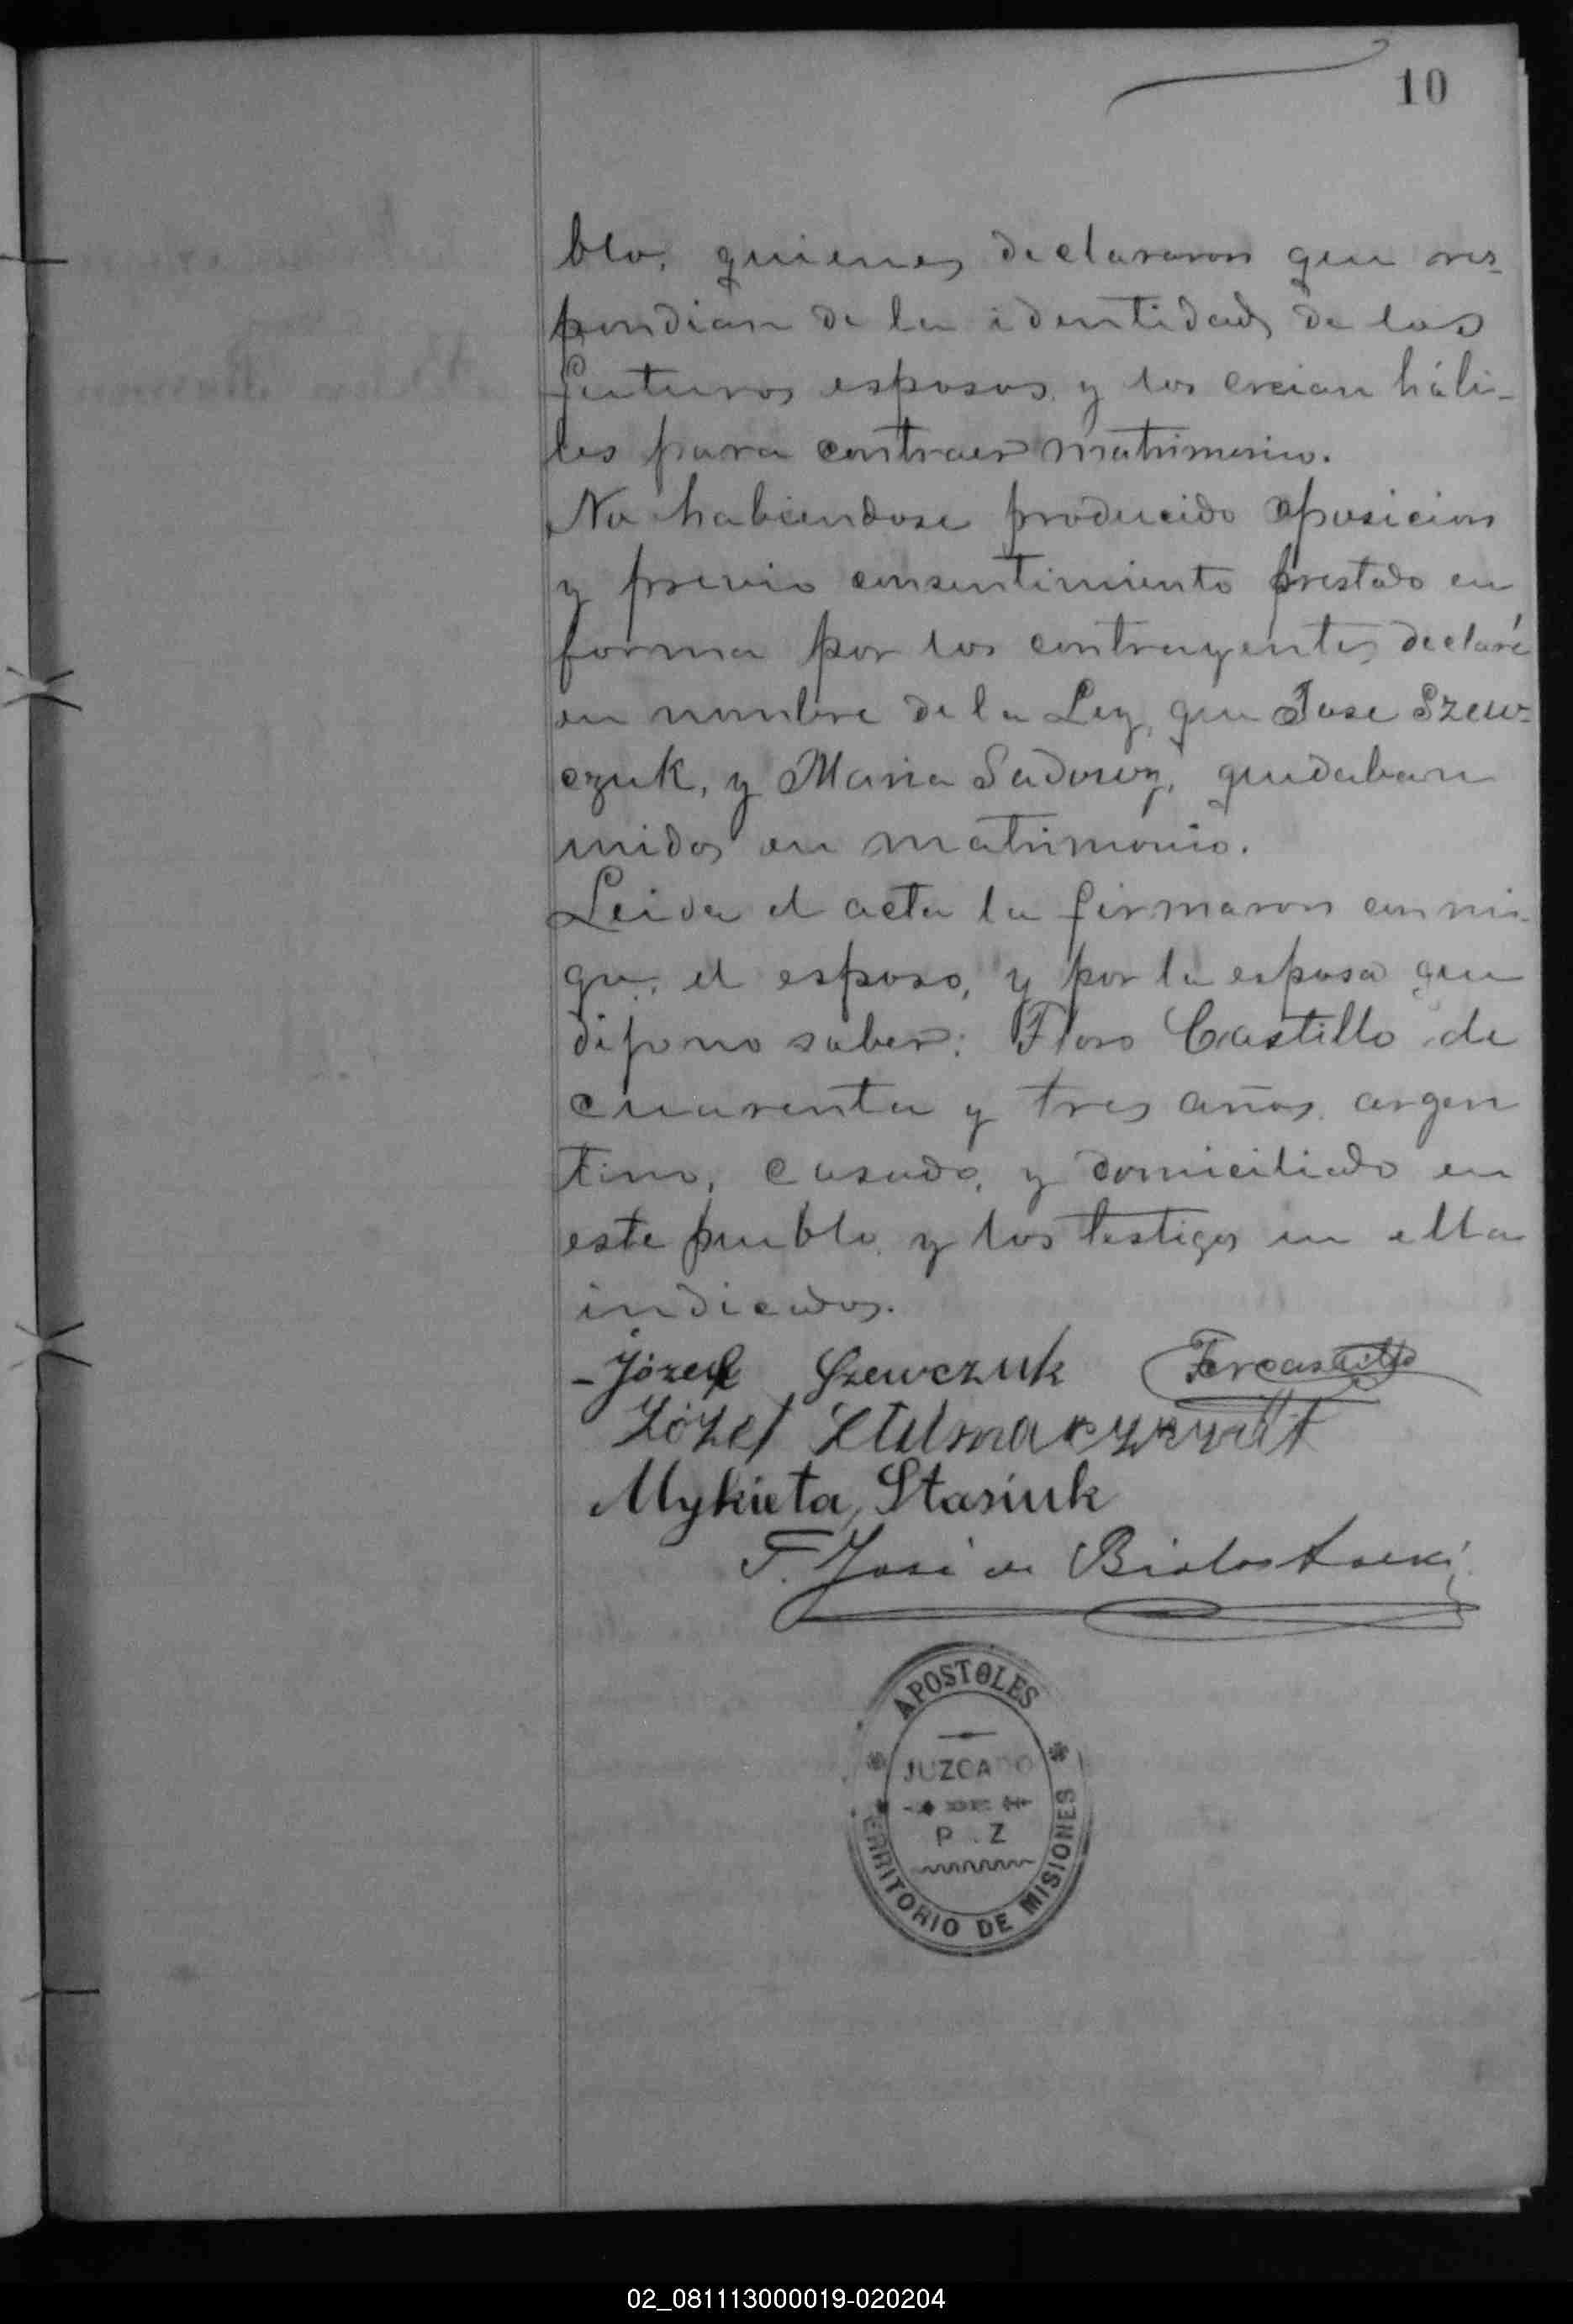 10
blo, quienes declararon que res-
pondian de la identidad de los
futuros esposos, y los creian hábi-
les para contraer matrimonio.
No habiendose producido oposicion
y previo consentimiento prestado en
forma por los contrayentes, declaré
en nombre de la Ley, que Jose Szew-
czuk, y Maria Sadowy, quedaban
unidos en matrimonio.
Leida el acta la firmaron conmi-
go, el esposo, y por la esposa que
dijo no saber: Floro Castillo de
cuarenta y tres años, argen
tino, casado, y domiciliado en
este pueblo, y los testigos en ella
indicados.
Józef Szewczuk
Józef
Mykieta Stasiuk
F. José de Bialostocki
APOSTOLES
JUZGADO
P Z
TERRITORIO DE MISIONES
02_081113000019-020204